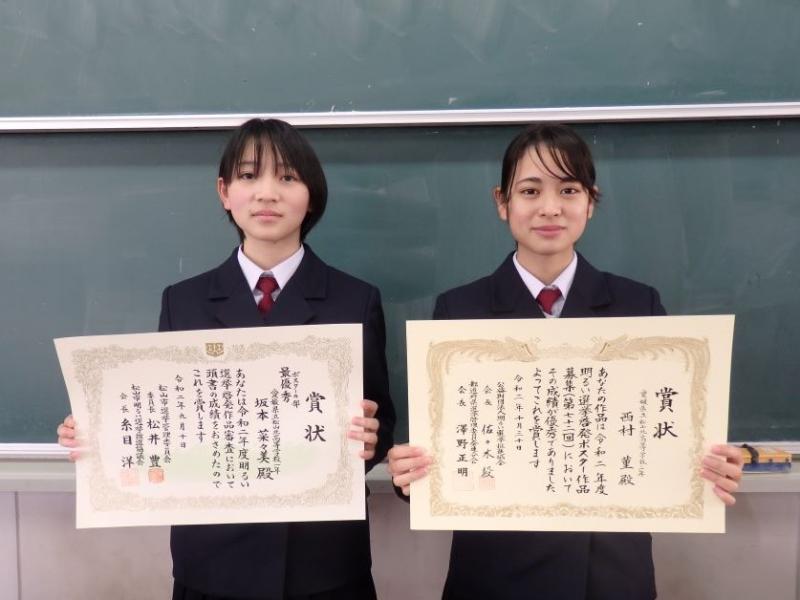 賞状
ポスターの部
最優秀
愛媛県立松山北高等学校二年
坂本 菜々美 殿
あなたは令和二年度明るい
選挙啓発作品審査において
頭書の成績をおさめたので
これを賞します
令和二年九月十日
松山市選挙管理委員会
委員長 松井 豊
松山市明るい選挙推進協議会
会長 糸目 洋
賞状
愛媛県立松山北高等学校二年
西村 菫 殿
あなたの作品は令和二年度
明るい選挙啓発ポスター作品
募集(第七十二回)において
その成績が優秀でありました
よってこれを賞します
令和二年十月三十日
公益財団法人明るい選挙推進協会
会長 佐々木 毅
都道府県選挙管理委員会連合会
会長 澤野 正明